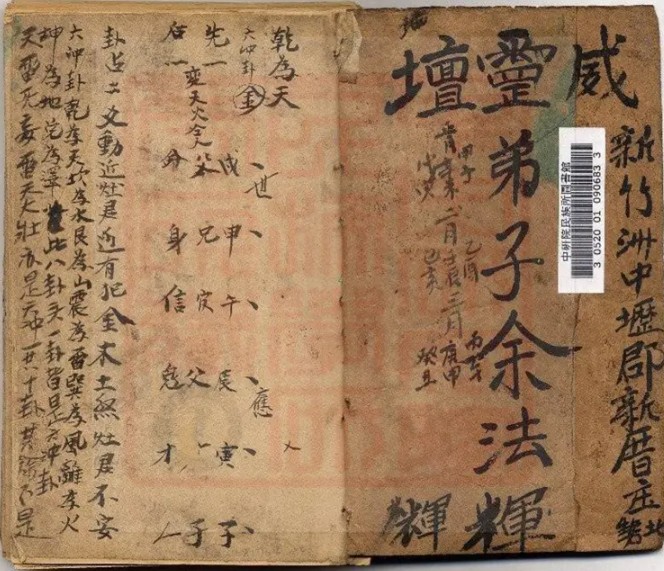 威
新竹洲中壢郡新厝庄
靈弟子余法輝
壇
輝
中研院民族所圖書館
3 0520 01 090683 3
甲子
二月
乙酉
己亥
三月
庚申
癸丑
乾為天
六冲卦 金
世
戌申午辰寅子
應
先一
變天火
后一
兄
父
子
分身信
才
卦占六爻動近灶君近有犯金木土煞灶君不安
六冲卦乾為天坎為水艮為山震為雷巽為風離為火
坤為地兌為澤此八卦頭一卦皆是六冲卦
天雷无妄雷天大壯亦是六冲一共十卦其餘不是